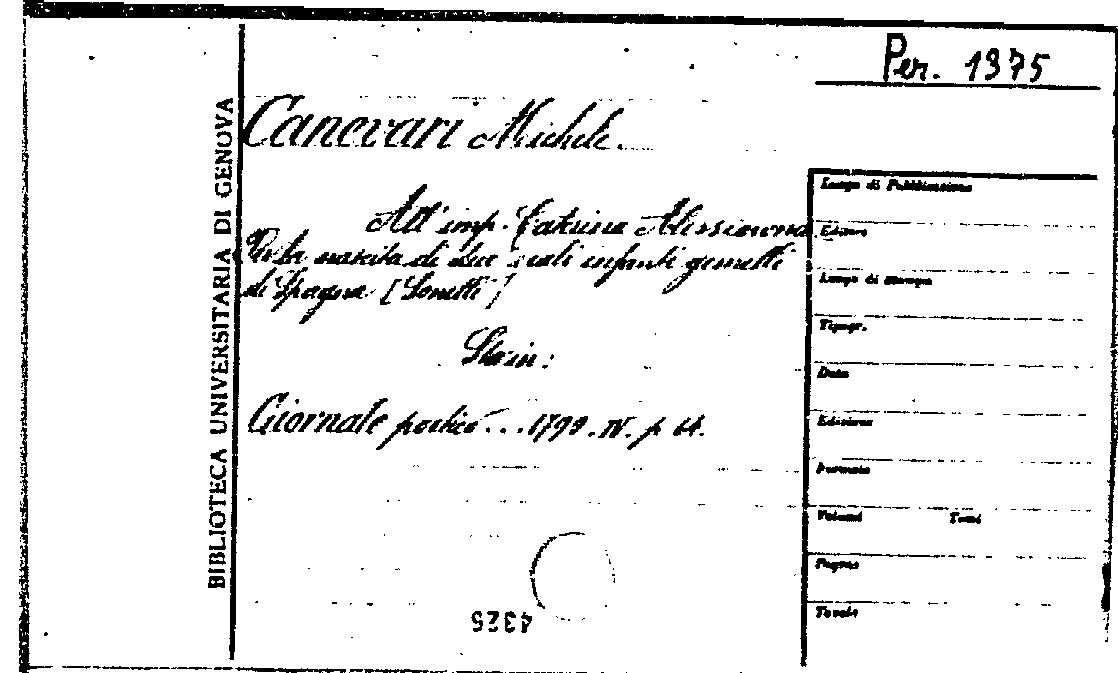 Per. 1375
BIBLIOTECA UNIVERSITARIA DI GENOVA
Canevari Michele.
All'imp. Catrina Alessiowna.
Per la nascita di due reali infanti gemelli
di Spagna [Sonetti]
Sta in:
Giornale poetico... 1793. IV. p 64.
Luogo di Pubblicazione
Editore
Luogo di stampa
Tipogr.
Data
Edizione
Formato
Volumi Tomi
Pagine
Tavole
4325